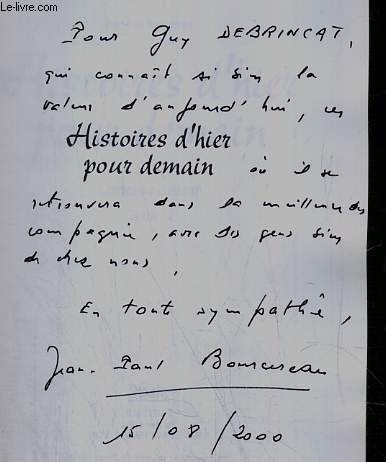 Le-livre.com
Pour Guy DEBRINCAT,
qui connaît si bien la
valeur d'aujourd'hui, ces
Histoires d'hier
pour demain où il se
retrouvera dans la meilleure des
compagnie, avec des gens bien
de chez nous,
En toute sympathie,
Jean-Paul
15/08/2000